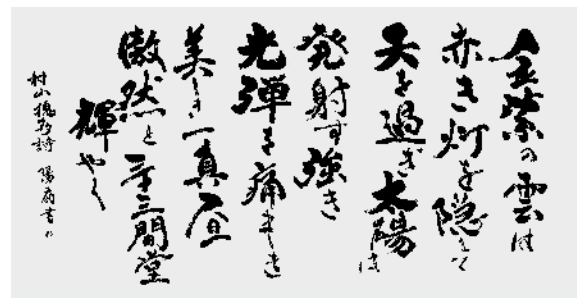 金紫の雲は
赤き灯を隠して
天を過ぎ太陽は
発射す強き
光弾を痛ましき
美しき真昼
傲然と三十三間堂
輝やく
村山槐多詩 陽扇書